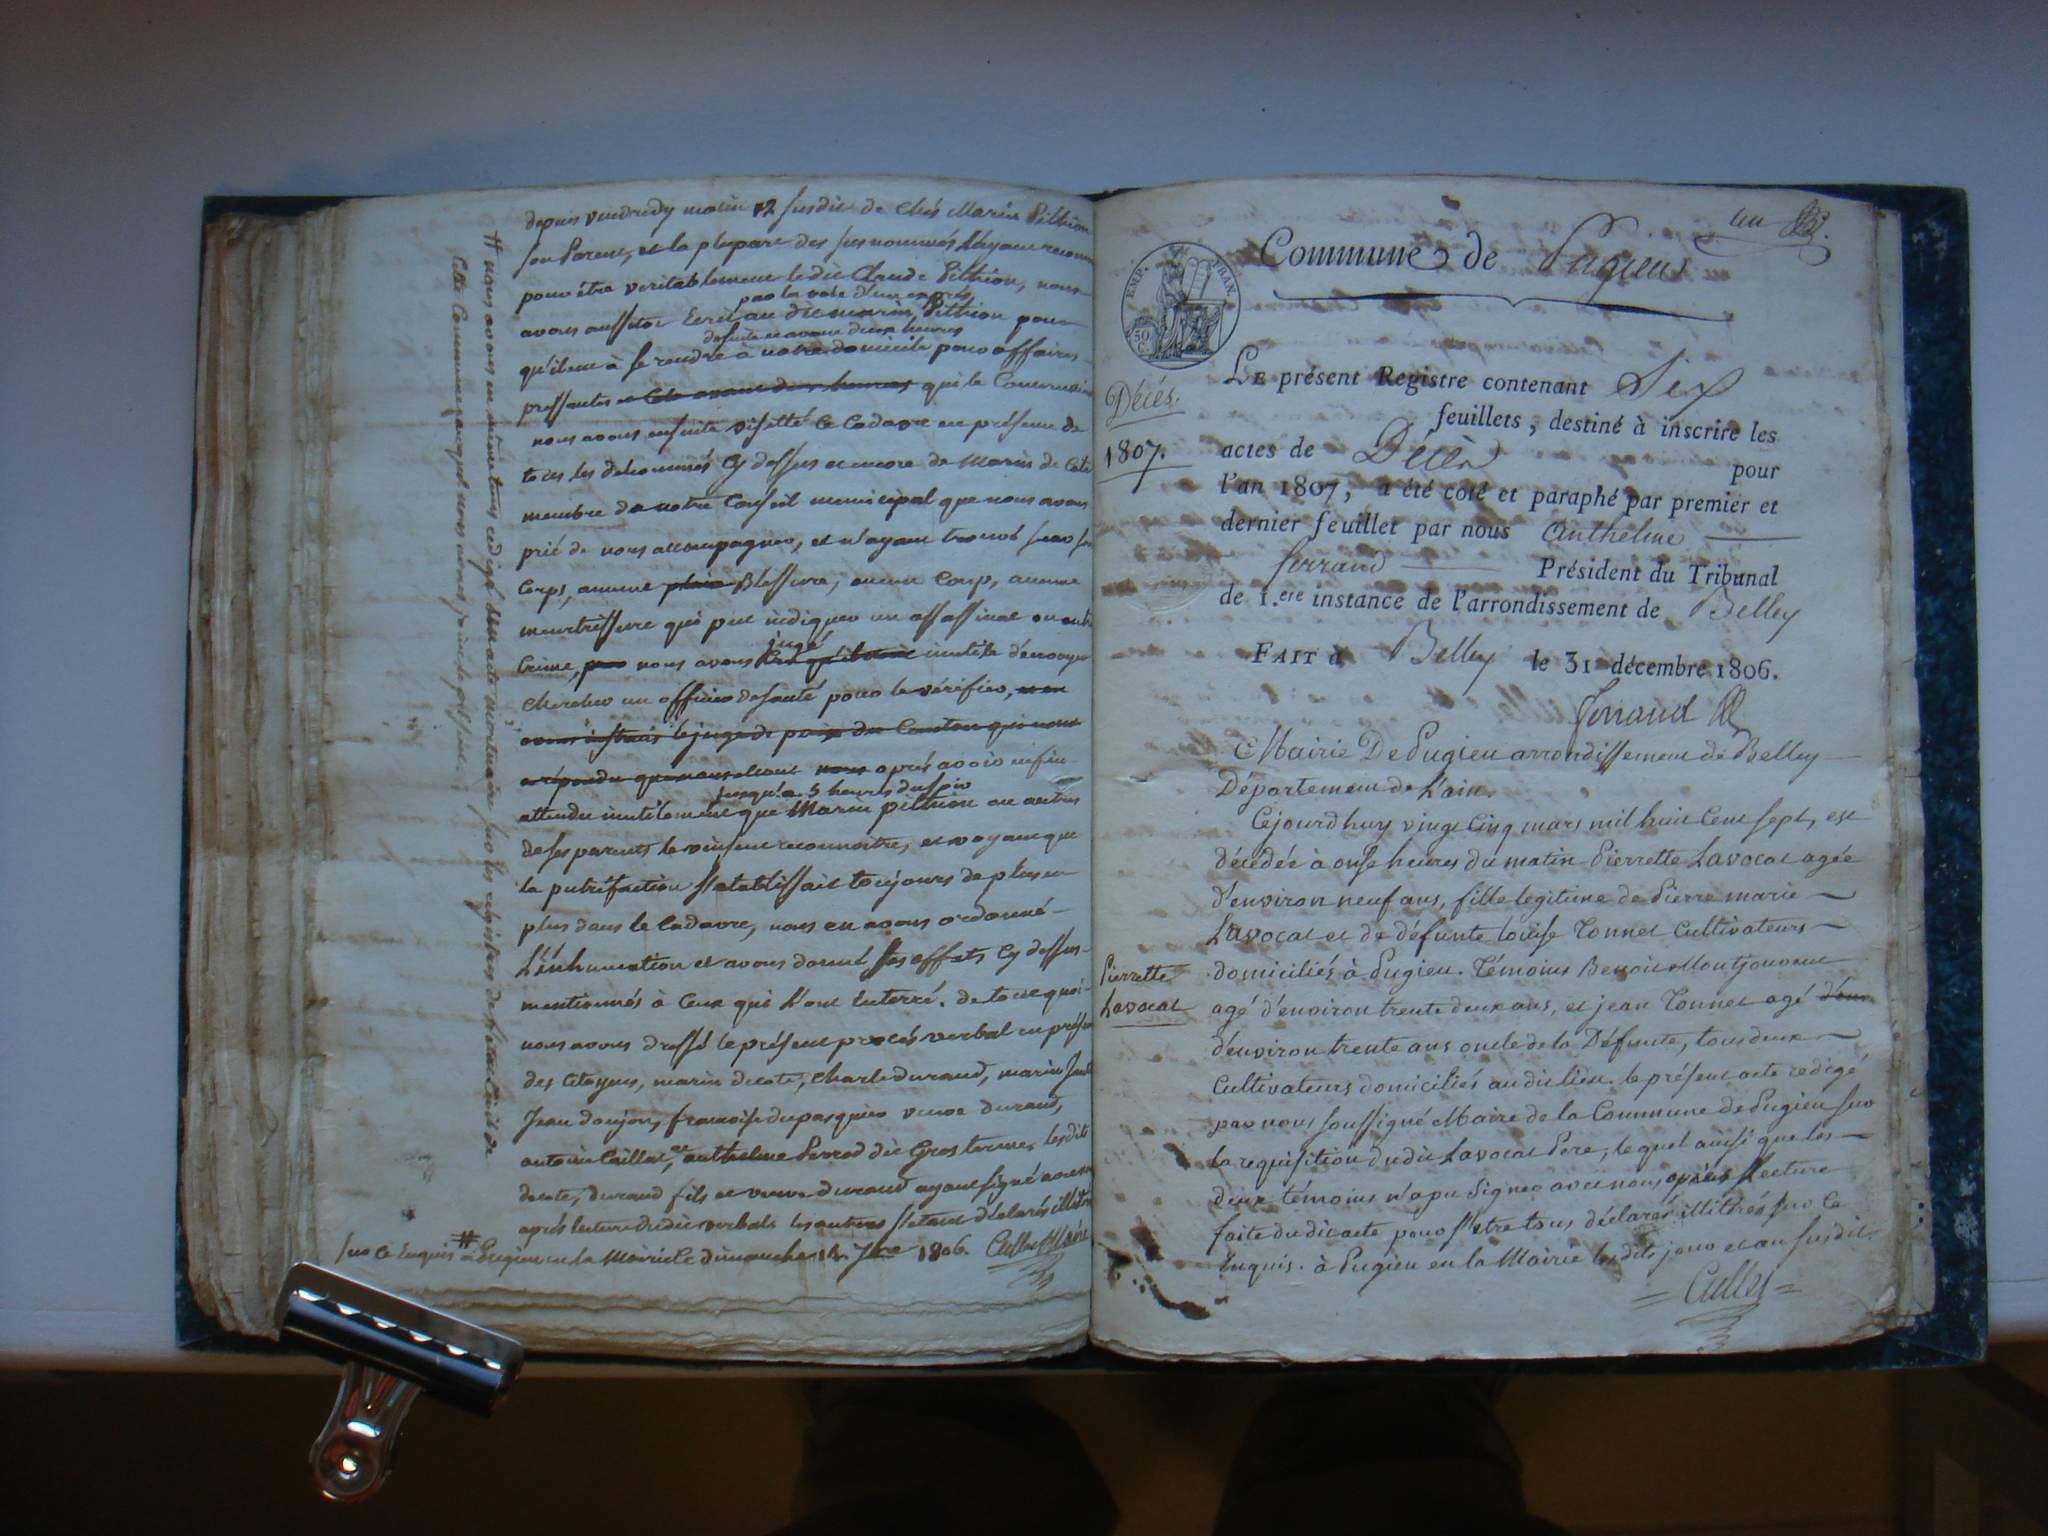 depuis vendredy matin 12 susdit de chés Marin Pithion
son Parent, et la plupart des susnommés l'ayant reconnu
pour être veritablement ledit Claude Pithion, nous
par la voie d'un exprès
avons aussitot Ecrit au dit marin Pithion pour
de suite et avant deux heures
qu'il eut à se rendre a notre domicile pour affaires
pressantes et cela avant deux heures qui le Concernaient
nous avons ensuite visitté le Cadavre en présence de
tous les dénommés Cy dessus et encore de Marin de Cote
membre de notre Conseil municipal que nous avons
prié de nous accompagner, et n'ayant trouvé sur son
Corps, aucune plaie Blessure, aucun Coup, aucune
meurtrissure qui put indiquer un assassinat ou autre
jugé
Crime, nous avons cru qu'il étoit inutile d'envoyer
chercher un officier de santé pour le vérifier, et en
avons instruit le juge de paix du Canton qui nous
a répondu nous après avoir
jusqu'a 5 heures du soir
attendu inutilement que Marin pithion ou autres
de ses parents le vinssent reconnoitre, et voyant que
la putréfaction s'etablissait toujours de plus en
plus dans le Cadavre, nous en avons ordonné
L'énhumation et avons donné ses effets Cy dessus
mentionnés à Ceux qui l'ont Enterré. de tout quoi
nous avons dressé le présent procés verbal en présence
des Citoyens, marin decote, Charle durand, marin
Jean doujon, francoise dupasquier veuve durand,
antoine Caillat, et anthelme Perrod dit Gros terme, les dits
decote, durand fils et veuve durand ayant signé avec nous
après lecture du dit verbal les autres s'etant déclarés illitérés
sur ce Enquis # à Pugieu en la Mairie le dimanche 14 7bre 1806. Cullet Maire
# nous avons en même tems redigé son acte mortuaire sur les registres de l'etat Civil de
cette Commune auquel nous avons joint le présent.
un
Commune de Pugieu
EMP. FRAN.
50 C.
Décés.
1807.
LE présent Registre contenant Six
feuillets, destiné à inscrire les
actes de Décès pour
l'an 1807, a été coté et paraphé par premier et
dernier feuillet par nous Anthelme
ferrand Président du Tribunal
de 1.ere instance de l'arrondissement de Belley
FAIT à Belley le 31 décembre 1806.
ferrand
Mairie De Pugieu arrondissement de Belley
Département de L'ain.
Cejourdhuy vingt Cinq mars mil huit Cent sept, est
décédée à onse heures du matin Pierrette Lavocat agée
d'environ neuf ans, fille legitime de Pierre marie
Lavocat et de défunte louise Tonnet Cultivateurs
Pierrette
Lavocat
domiciliés à Pugieu. Témoins Benoit Montjouvent
agé d'environ trente deux ans, et jean Tonnet agé d'en
d'environ trente ans oncle de la Défunte, tous deux
Cultivateurs domiciliés au dit lieu. le présent acte redigé
par nous soussigné Maire de la Commune de Pugieu sur
la requisition du dit Lavocat Pere, lequel ainsi que les
deux témoins n'a pu Signer avec nous après lecture
faite du dit acte pour s'être tous déclarés illitérés sur ce
Enquis. à Pugieu en la Mairie les dits jour et an susdit.
= Cullet =